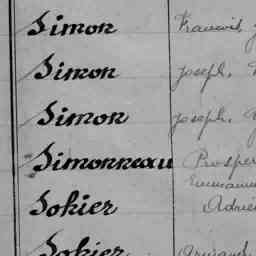 Simon Francis J
Simon Joseph,
Simon Joseph,
Simonneau Prosper
Emmanu
Sohier Adrie
Sohier Armand